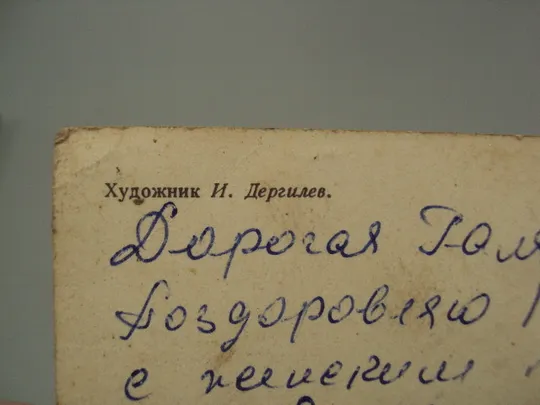 Художник И. Дергилев.
Дорогая Галя
Поздоровляю
с женским